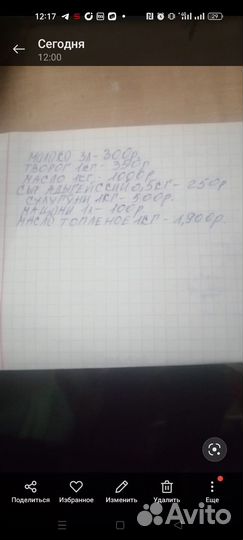 12:17
29
Сегодня
12:00
МОЛОКО 3л - 300р.
ТВОРОГ 1кг - 350р
МАСЛО 1кг - 1000р.
СЫР АДЫГЕЙССКИЙ 0,5кг - 250р
СУЛУГУНИ 1кг - 500р.
МАЦОНИ 1л - 100р
МАСЛО ТОПЛЕНОЕ 1кг - 1,900р.
Поделиться
Избранное
Изменить
Удалить
Еще
Avito